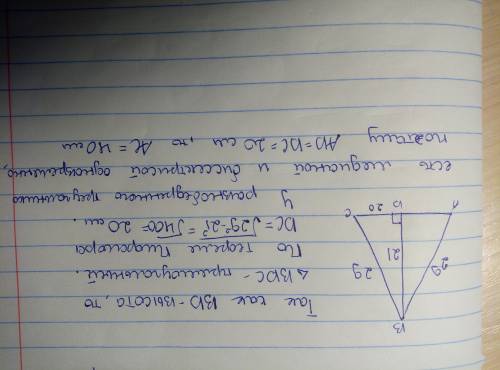 B
29
29
21
A
D
20
C
Так как BD - высота, то
△ BDC - прямоугольный.
По теореме Пифагора
DC = √29²-21² = √400 = 20 см.
У равнобедренного треугольника
есть медианой и биссектрисой одновременно,
поэтому AD = DC = 20 см, то AC = 40 см